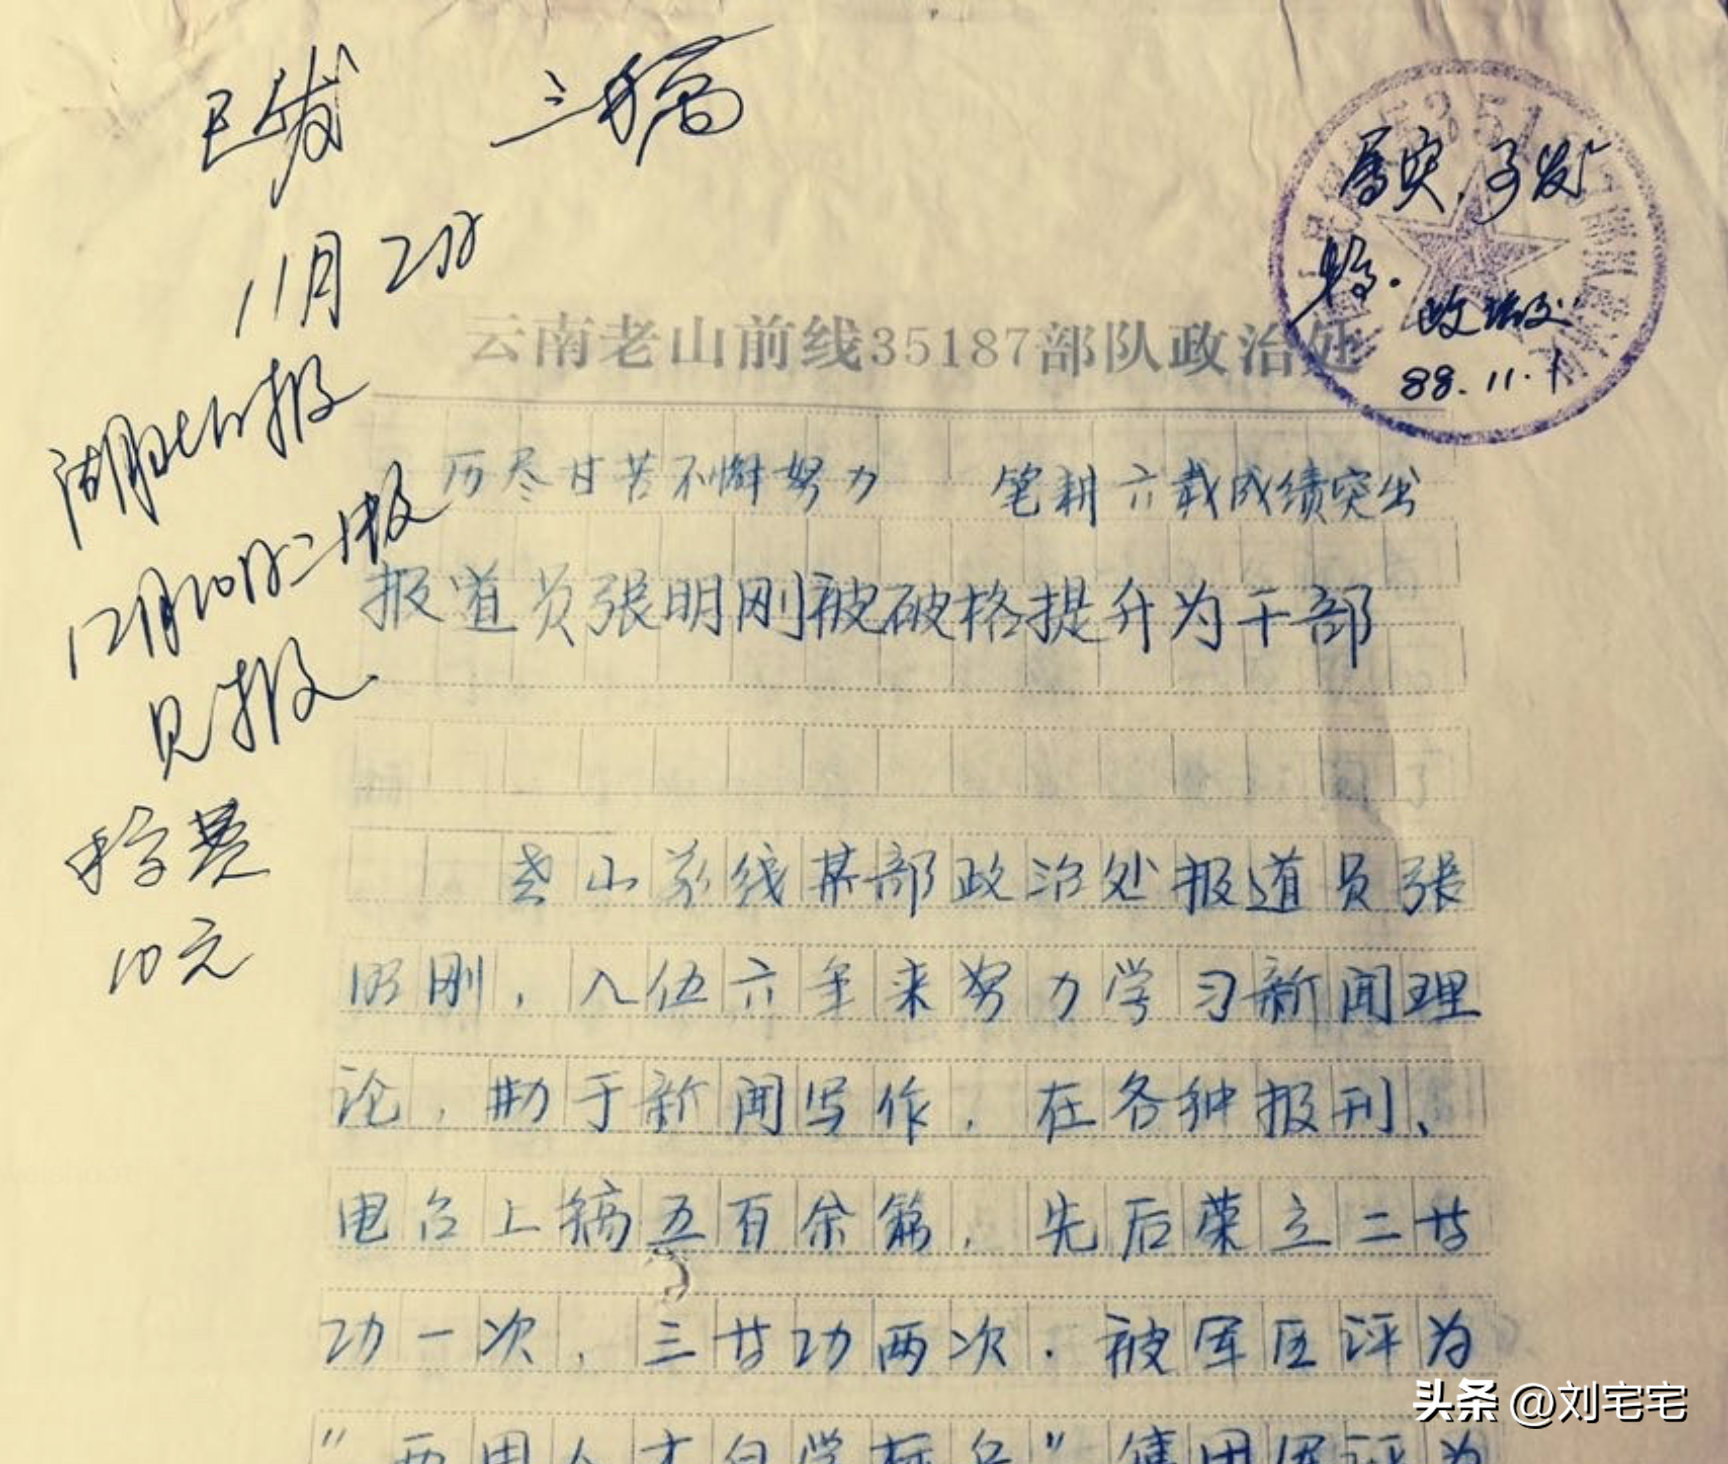 已发
三稿
11月2日
属实,可发
稿.
政治处
88.11.1
云南老山前线35187部队政治处
湖北日报
12月20日二版
见报
稿费
10元
历尽甘苦不懈努力 笔耕六载成绩突出
报道员张明刚被破格提升为干部
老山前线某部政治处报道员张
明刚,入伍六年来努力学习新闻理
论,勤于新闻写作,在各种报刊、
电台上稿五百余篇,先后荣立二等
功一次,三等功两次.被军区评为
“两用人才自学标兵”集团军评为
头条 @刘宅宅